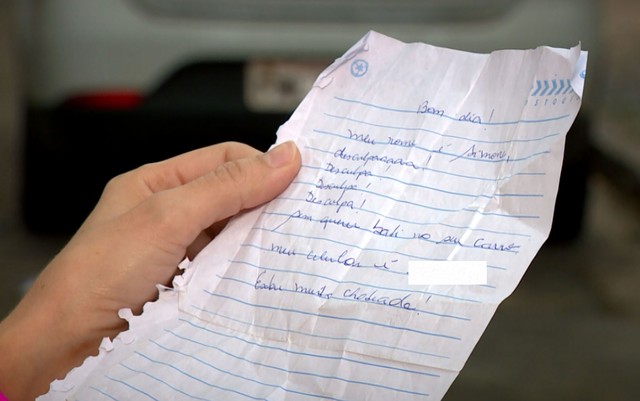 Bom dia!
meu nome é Simone,
desculpaaaaa!
Desculpa!
Desculpe!
Desculpa!
sem querer bati no seu carro
meu celular é
Estou muito chateada!